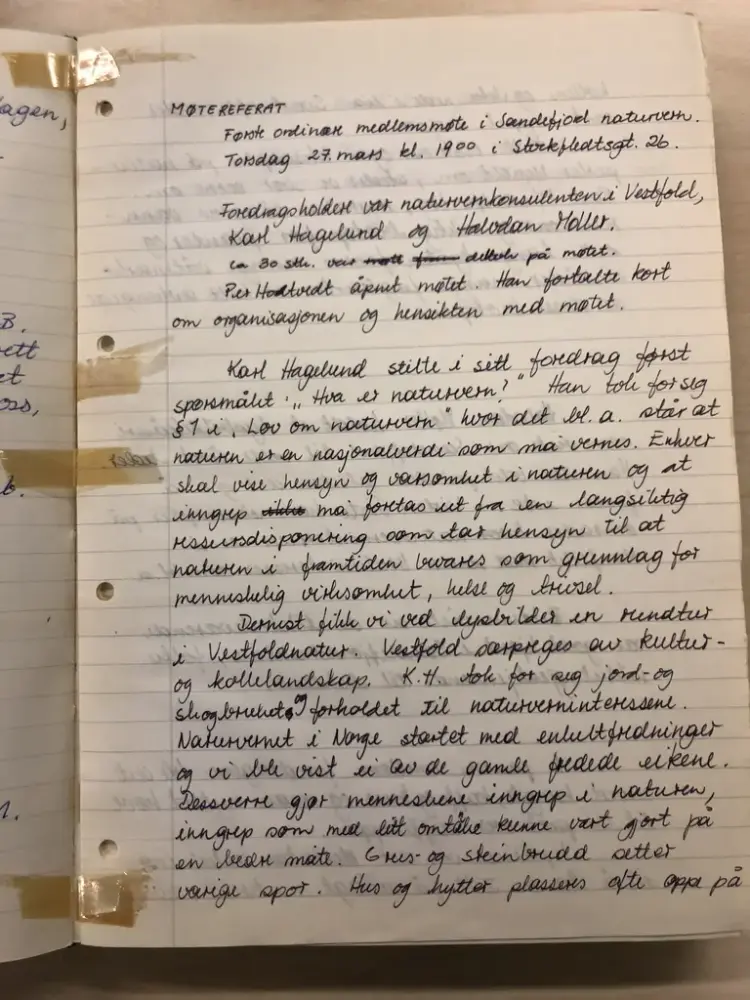 agen,
B.
ett
et
oss,
b.
1.
MØTEREFERAT
Første ordinære medlemsmøte i Sandefjord naturvern.
Torsdag 27. mars kl. 1900 i Stockfledtsgt. 26.
Foredragsholdere var naturvernkonsulenten i Vestfold,
Karl Hagelund og Halvdan Møller.
ca 30 stk. var møtt frem deltok på møtet.
Per Hodtvedt åpnet møtet. Han fortalte kort
om organisasjonen og hensikten med møtet.
Karl Hagelund stilte i sitt foredrag først
spørsmålet „Hva er naturvern?" Han tok for seg
§ 1 i „Lov om naturvern" hvor det bl. a. står at
naturen er en nasjonalverdi som må vernes. Enhver
skal vise hensyn og varsomhet i naturen og at
inngrep ikke må foretas ut fra en langsiktig
ressursdisponering som tar hensyn til at
naturen i framtiden bevares som grunnlag for
menneskelig virksomhet, helse og trivsel.
Dernest fikk vi ved lysbilder en rundtur
i Vestfoldnatur. Vestfold særpreges av kultur-
og kollelandskap. K.H. tok for seg jord- og
skogbruket, og forholdet til naturverninteressene.
Naturvernet i Norge startet med enkeltfredninger
og vi ble vist ei av de gamle fredede eikene.
Dessverre gjør menneskene inngrep i naturen,
inngrep som med litt omtanke kunne vært gjort på
en bedre måte. Grus- og steinbrudd setter
varige spor. Hus og hytter plasseres ofte oppe på